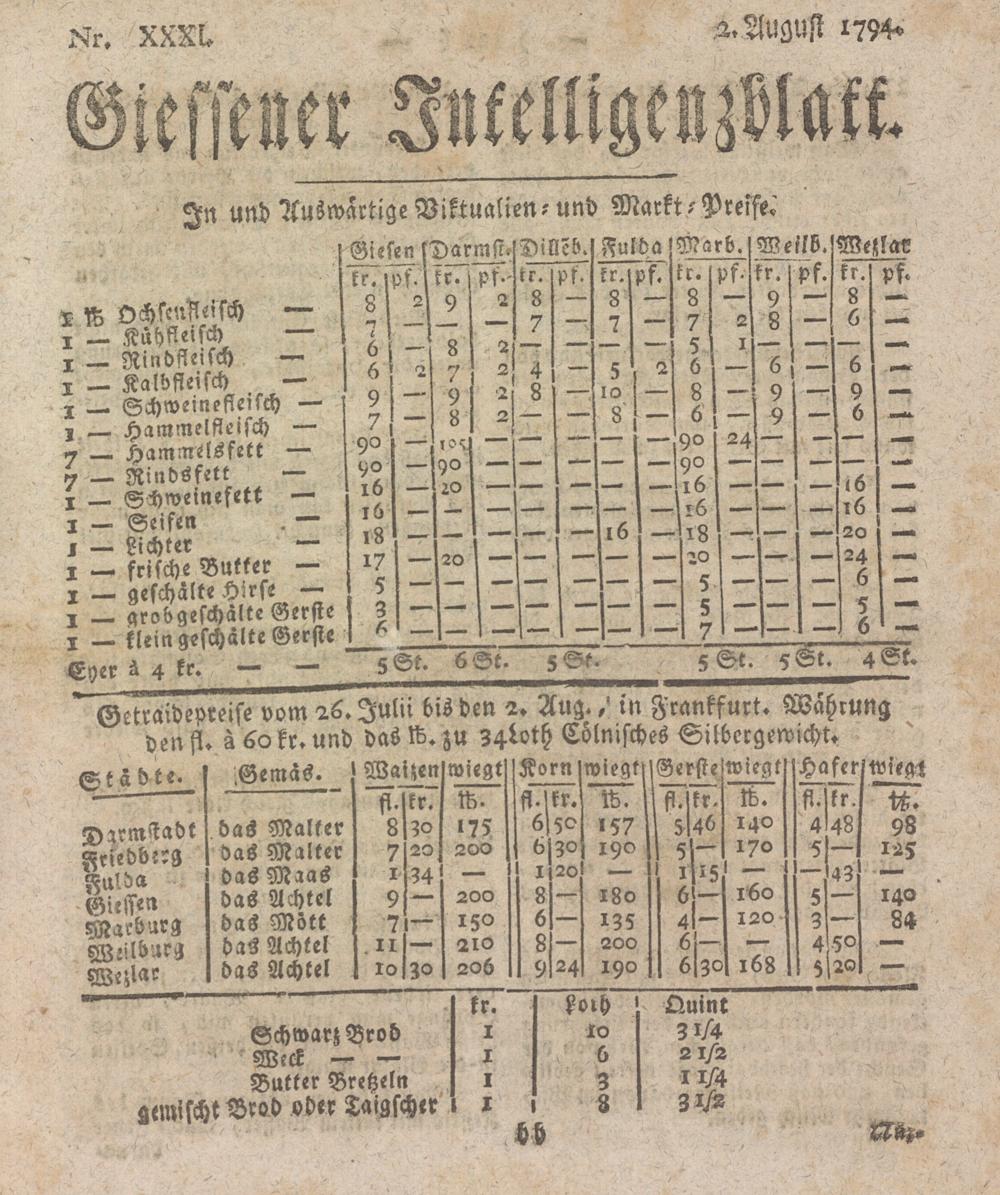 Nr. XXXI. 2. August 1794.
Giessener Intelligenzblatt.
In und Auswärtige Viktualien- und Markt-Preise.
Giesen Darmst. Dillēb. Fulda Marb. Weilb. Wezlar
kr. pf. kr. pf. kr. pf. kr. pf. kr. pf. kr. pf. kr. pf.
1 ℔ Ochsenfleisch — 8 2 9 2 8 — 8 — 8 — 9 — 8 —
1 — Kühfleisch — 7 — — — 7 — 7 — 7 2 8 — 6 —
1 — Rindfleisch — 6 — 8 2 — — — — 5 1 — — — —
1 — Kalbfleisch — 6 2 7 2 4 — 5 2 6 — 6 — 6 —
1 — Schweinefleisch — 9 — 9 2 8 — 10 — 8 — 9 — 9 —
1 — Hammelfleisch — 7 — 8 2 — — 8 — 6 — 9 — 6 —
7 — Hammelsfett — 90 — 105 — — — — — 90 24 — — — —
7 — Rindsfett — 90 — 90 — — — — — 90 — — — — —
1 — Schweinefett — 16 — 20 — — — — — 16 — — — 16 —
1 — Seifen — 16 — — — — — — — 16 — — — 16 —
1 — Lichter — 18 — — — — — 16 — 18 — — — 20 —
1 — frische Butter — 17 — 20 — — — — — 20 — — — 24 —
1 — geschälte Hirse — 5 — — — — — — — 5 — — — 6 —
1 — grobgeschälte Gerste 3 — — — — — — — 5 — — — 5 —
1 — kleingeschälte Gerste 6 — — — — — — — 7 — — — 6 —
Eyer à 4 kr. — — 5 St. 6 St. 5 St. 5 St. 5 St. 4 St.
Getraidepreise vom 26. Julii bis den 2. Aug., in Frankfurt. Währung
den fl. à 60 kr. und das ℔. zu 34 Loth Cölnisches Silbergewicht.
Städte. Gemäs. Waizen wiegt Korn wiegt Gerste wiegt Hafer wiegt
fl. kr. ℔. fl. kr. ℔. fl. kr. ℔. fl. kr. ℔.
Darmstadt das Malter 8 30 175 6 50 157 5 46 140 4 48 98
Friedberg das Malter 7 20 200 6 30 190 5 — 170 5 — 125
Fulda das Maas 1 34 — 1 20 — 1 15 — — 43 —
Giessen das Achtel 9 — 200 8 — 180 6 — 160 5 — 140
Marburg das Mött 7 — 150 6 — 135 4 — 120 3 — 84
Weilburg das Achtel 11 — 210 8 — 200 6 — — 4 50 —
Wezlar das Achtel 10 30 206 9 24 190 6 30 168 5 20 —
kr. Loth Quint
Schwarz Brod 1 10 3 1/4
Weck — — 1 6 2 1/2
Butter Bretzeln 1 3 1 1/4
gemischt Brod oder Taigscher 1 8 3 1/2
hh